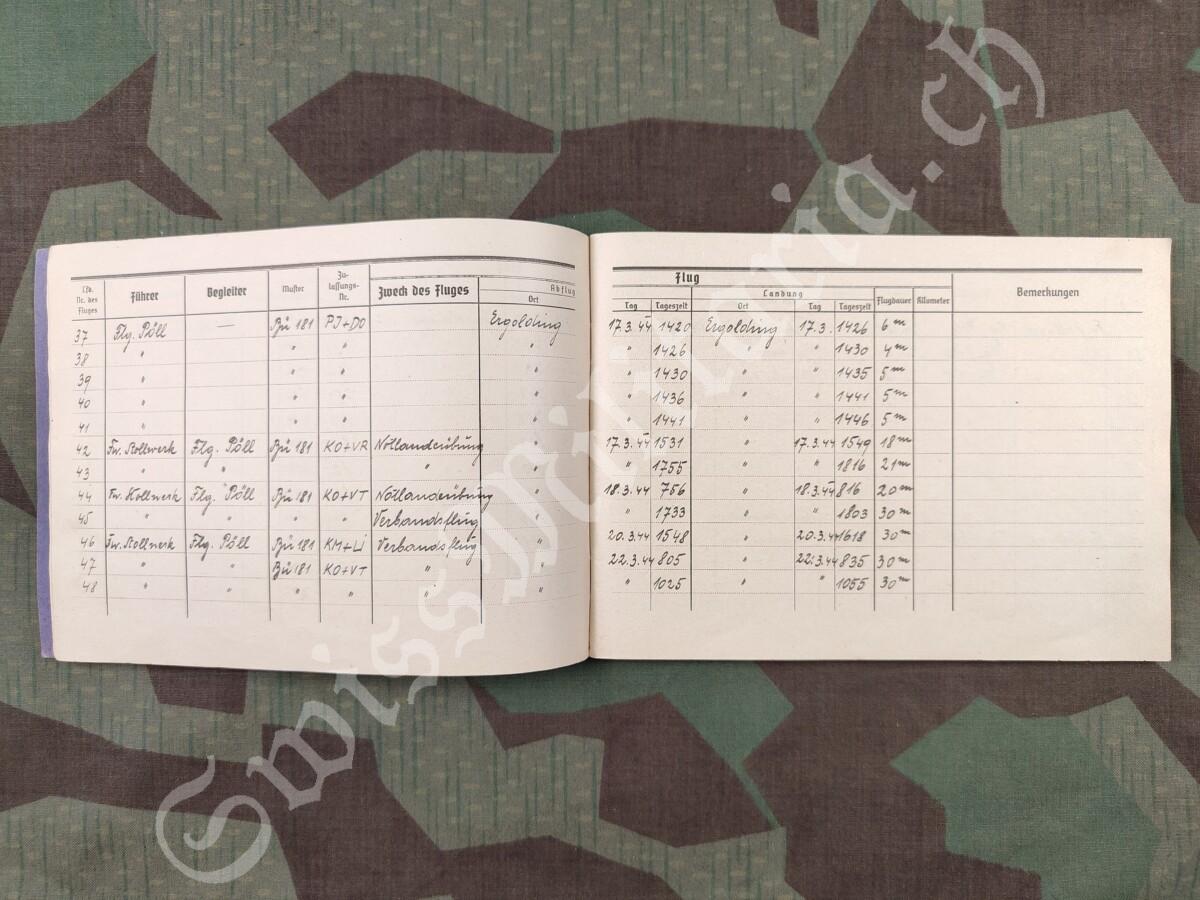 Lfd. Nr. des Fluges Führer Begleiter Muster Zu- lassungs- Nr. Zweck des Fluges Abflug Ort
37 Flg. Pöll — Bü 181 PJ+DO Ergolding
38 " " " "
39 " " " "
40 " " " "
41 " " " "
42 Fw. Kollwerk Flg. Pöll Bü 181 KO+VR Notlandeübung "
43 " " " "
44 Fw. Kollwerk Flg. Pöll Bü 181 KO+VT Notlandeübung "
45 " " " " Verbandsflug "
46 Fw. Kollwerk Flg. Pöll Bü 181 KM+LI Verbandsflug "
47 " " Bü 181 KO+VT " "
48 " " " " "
Flug
Landung
Tag Tageszeit Ort Tag Tageszeit Flugdauer Kilometer Bemerkungen
17.3.44 1420 Ergolding 17.3. 1426 6m
" 1426 " " 1430 4m
" 1430 " " 1435 5m
" 1436 " " 1441 5m
" 1441 " " 1446 5m
17.3.44 1531 " 17.3.44 1549 18m
" 1755 " " 1816 21m
18.3.44 756 " 18.3.44 816 20m
" 1733 " " 1803 30m
20.3.44 1548 " 20.3.44 1618 30m
22.3.44 805 " 22.3.44 835 30m
" 1025 " " 1055 30m
SwissMilitaria.ch